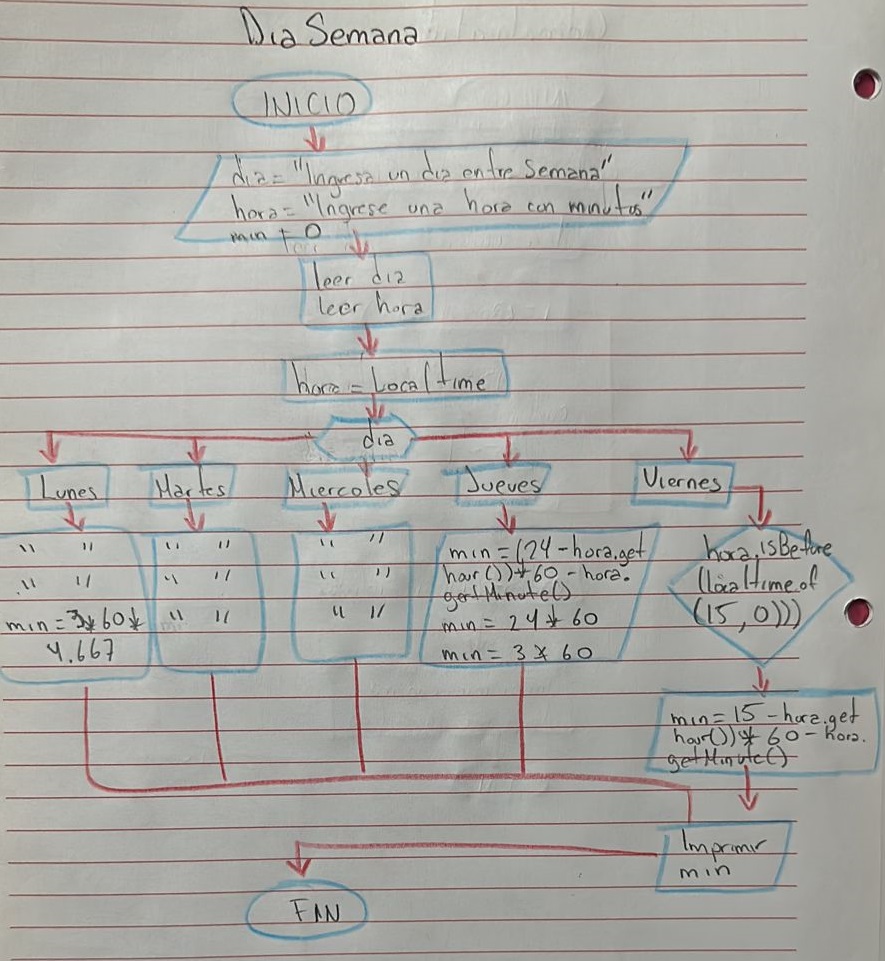 Dia Semana
INICIO
dia = "Ingresa un dia entre Semana"
hora = "Ingrese una hora con minutos"
min + 0
leer dia
leer hora
Hora = Local time
dia
Lunes
Martes
Miercoles
Jueves
Viernes
" "
" "
min = 3*60*
4.667
" "
" "
" "
" "
" "
" "
min = (24 - hora.get
hour())*60 - hora.
gertMinute()
min = 24 * 60
min = 3 * 60
hora.isBefore
(localtime.of
(15,0)))
min = 15 - hora.get
hour()) * 60 - hora.
getMinute()
Imprimir
min
FIN